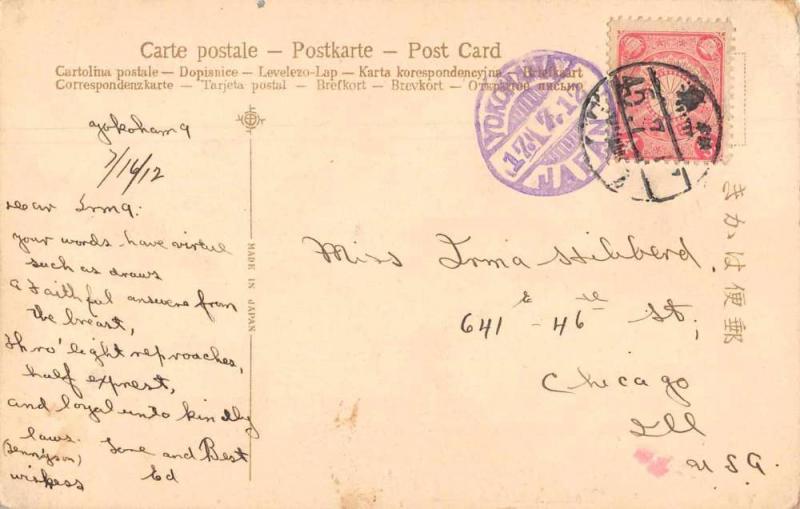 Carte postale – Postkarte – Post Card
Cartolina postale – Dopisnice – Levelezo-Lap – Karta korespondencyjna – Briefkaart
Correspondenzkarte – Tarjeta postal – Brefkort – Brevkort – Открытое письмо
Yokohama
7/16/12
Dear Irma:
Your words have virtue
such as draws
a Faithful answere from
the breast,
Thro' light reproaches,
half exprest,
and loyal unto kindly
laws.
(Tennyson)
Love and Best
wishess Ed
MADE IN JAPAN
YOKOHAMA
17.7.12
JAPAN
Miss Irma Hibberd,
641 E – 46 St;
Chicago
Ill
U.S.A.
きかは便郵